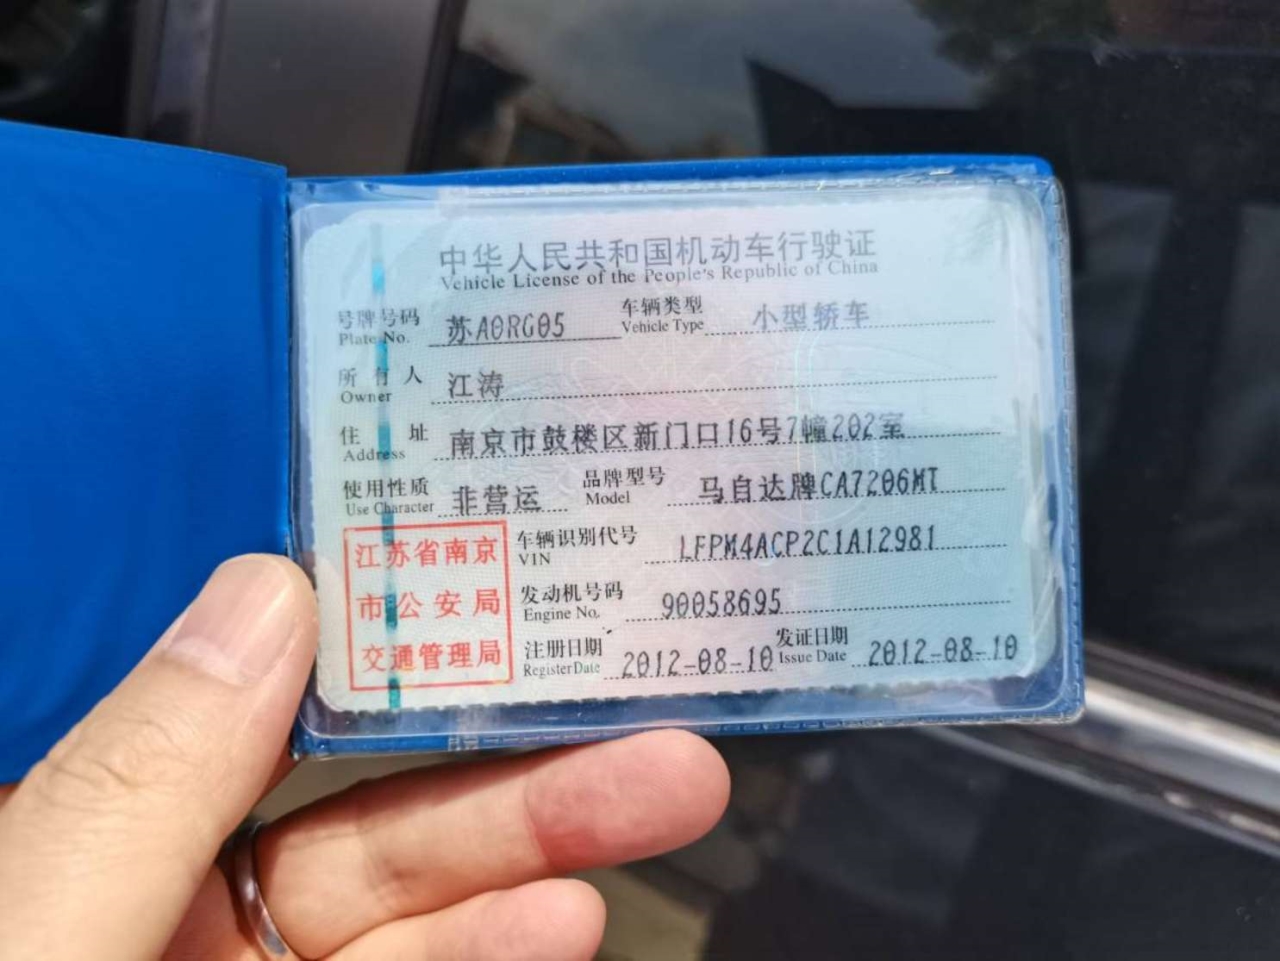 中华人民共和国机动车行驶证
Vehicle License of the People's Republic of China
号牌号码 苏A0RG05 车辆类型 小型轿车
Plate No. Vehicle Type
所有人 江涛
Owner
住址 南京市鼓楼区新门口16号7幢202室
Address
使用性质 非营运 品牌型号 马自达牌CA7206MT
Use Character Model
江苏省南京
市公安局
交通管理局
车辆识别代号 LFPM4ACP2C1A12981
VIN
发动机号码 90058695
Engine No.
注册日期 2012-08-10 发证日期 2012-08-10
Register Date Issue Date